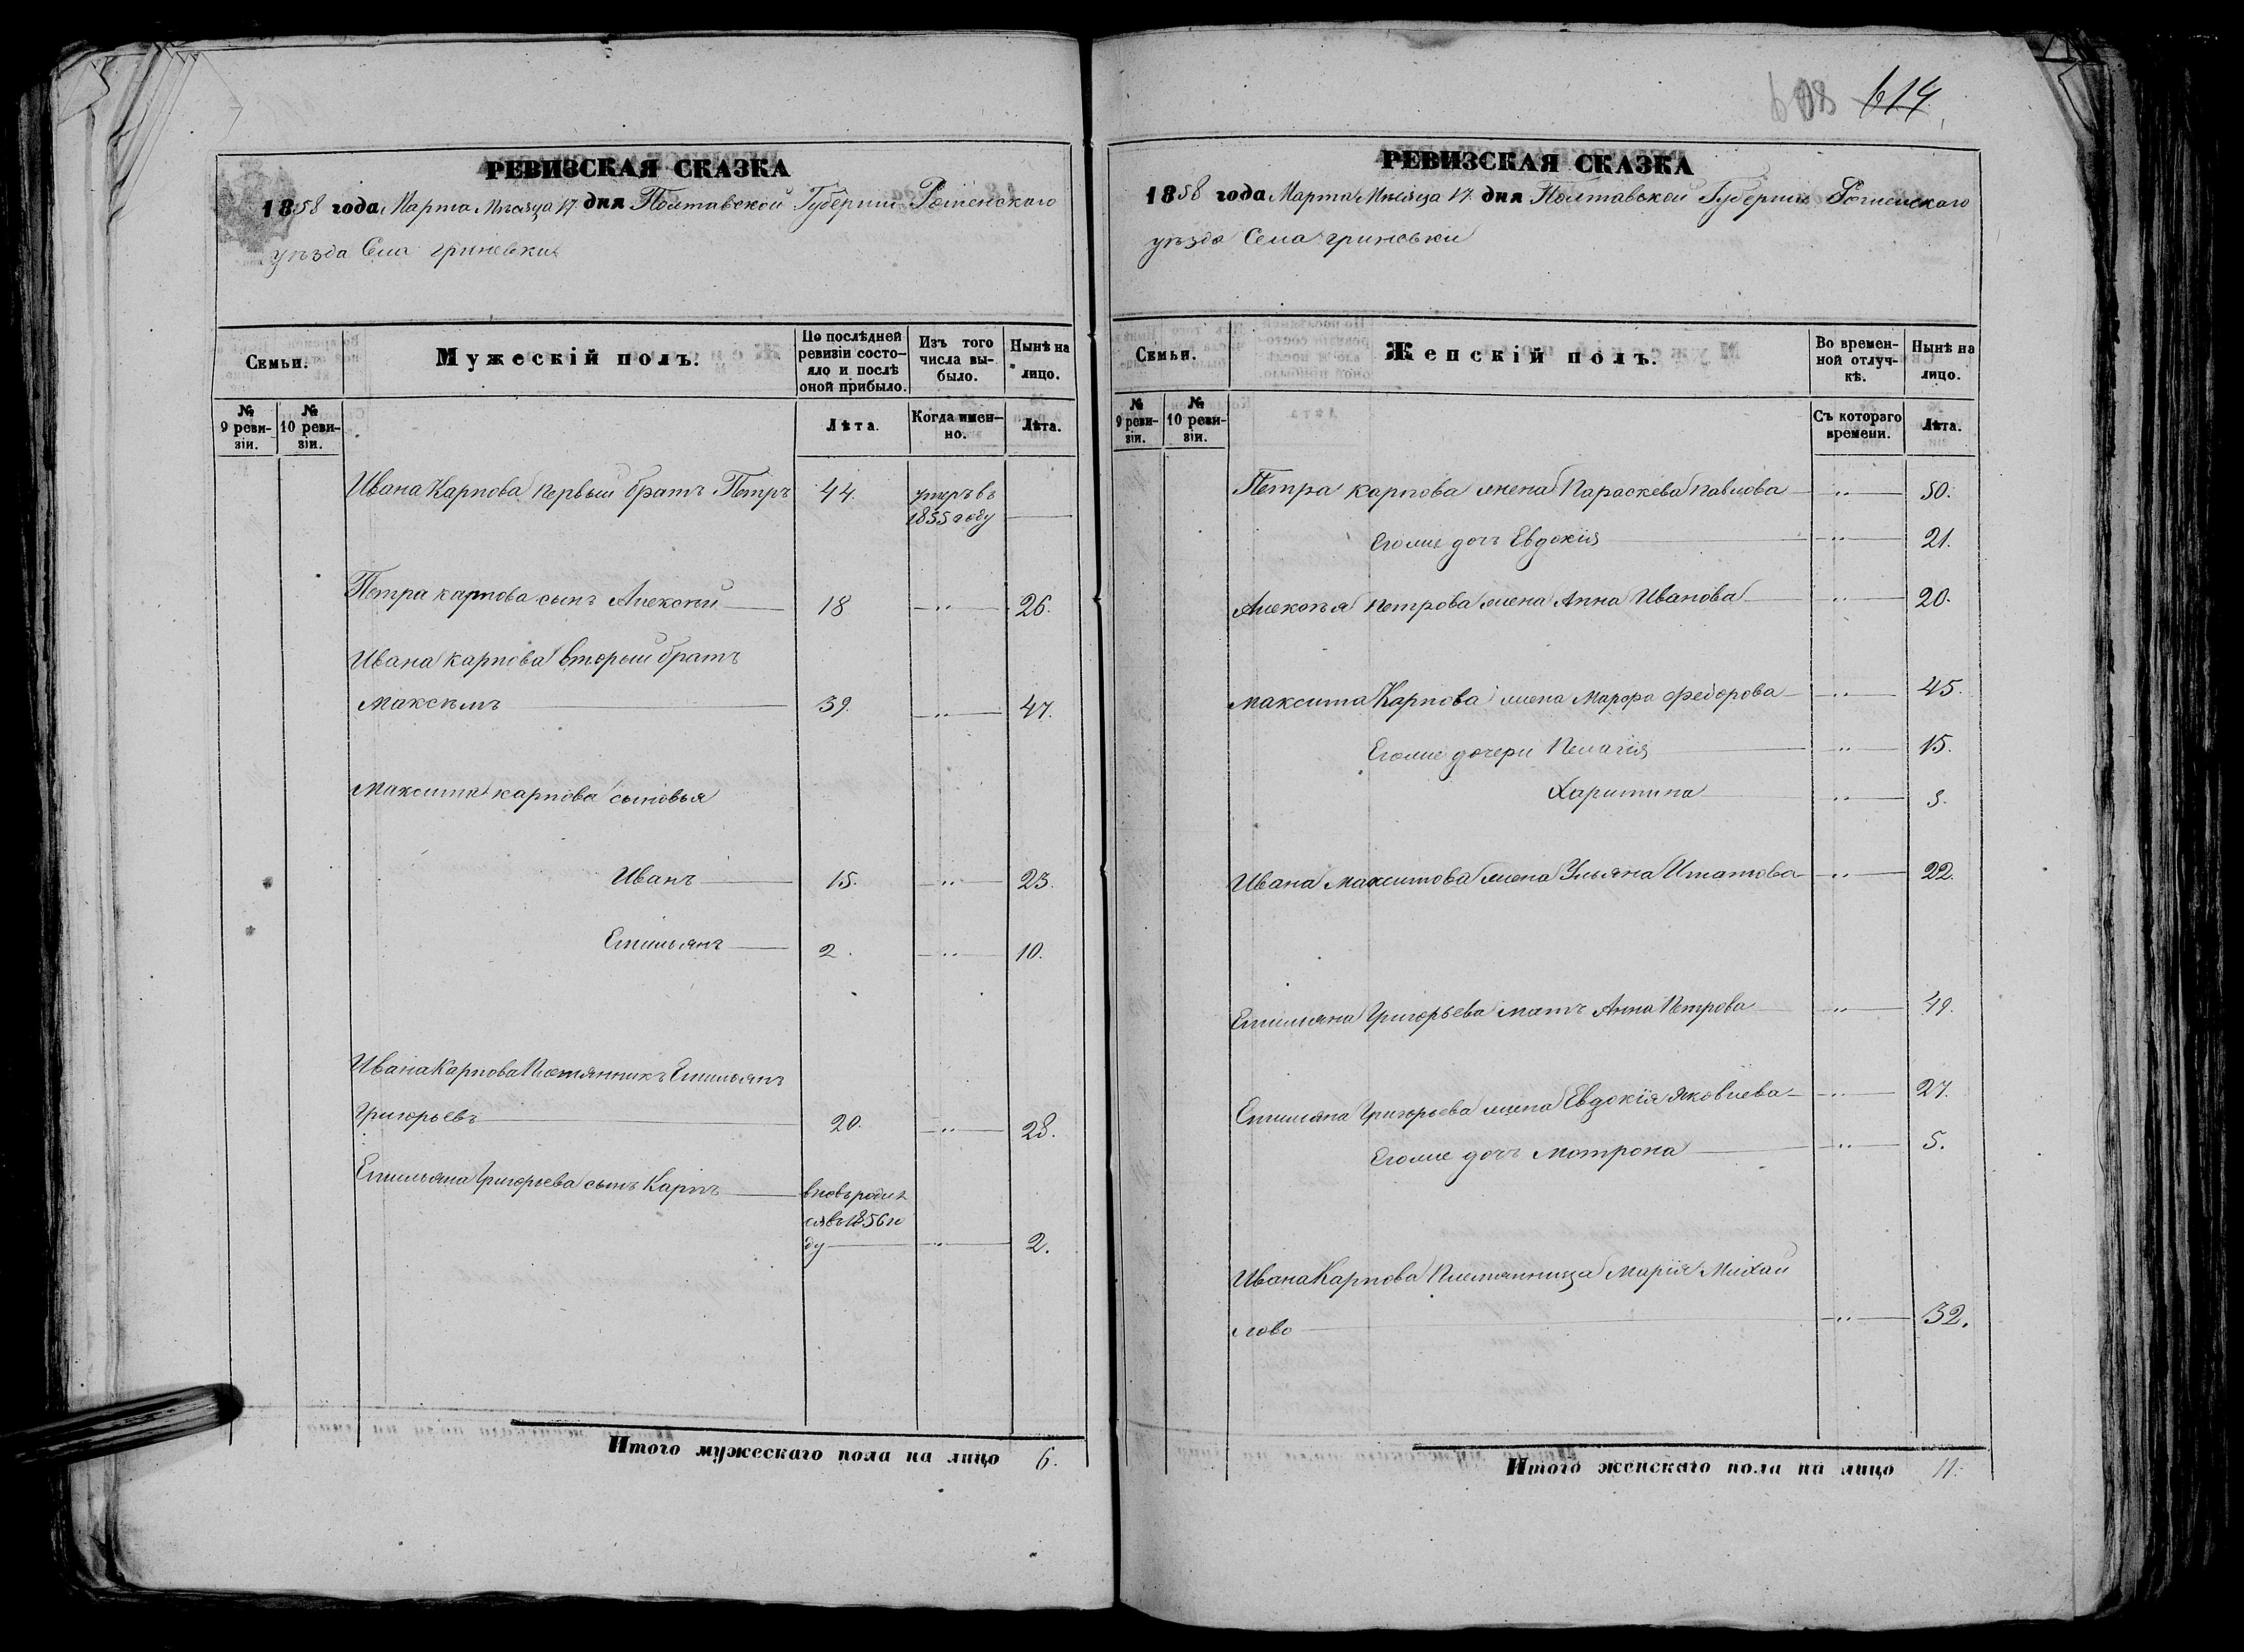 608 614
РЕВИЗСКАЯ СКАЗКА
1858 года Марта Мѣсяца 17 дня Полтавской Губерніи Роменского
уѣзда Села Гриневки
Семьи.
Мужескій полъ.
По послѣдней ревизіи состо-яло и послѣ оной прибыло.
Изъ того числа вы-было.
Нынѣ на лицо.
№ 9 реви-зіи.
№ 10 реви-зіи.
Лѣта.
Когда имен-но.
Лѣта.
Ивана Карпова первый братъ Петръ 44. умеръ въ
1855 году
Петра Карпова сынъ Алексѣй 18 26.
Ивана Карпова вторый братъ
Максимъ 39. 47.
Максима Карпова сыновья
Иванъ 15. 23.
Емильянъ 2. 10.
Ивана Карпова Племянникъ Емильянъ
Григорьевъ 20. 28.
Емильяна Григорьева сынъ Карпъ вновь родил
ся въ 1856 го
ду 2.
Итого мужескаго пола на лицо 6.
РЕВИЗСКАЯ СКАЗКА
1858 года Марта Мѣсяца 17 дня Полтавской Губерніи Роменского
уѣзда Села Гриневки
Семьи.
Женскій полъ.
Во времен-ной отлуч-кѣ.
Нынѣ на лицо.
№ 9 реви-зіи.
№ 10 реви-зіи.
Съ котораго времени.
Лѣта.
Петра Карпова жена Параскева Павлова 50.
Его же дочь Евдокія 21.
Алексѣя Петрова жена Анна Иванова 20.
Максима Карпова жена Марфа Федорова 45.
Его же дочери Пелагія 15.
Харитина
Ивана Максимова жена Ульяна 22.
Емильяна Григорьева мать Анна Петрова 49.
Емильяна Григорьева жена Евдокія Яковлева 27.
Его же дочь Мотрона 5.
Ивана Карпова Племянница Марія Михай
лова 32.
Итого женскаго пола на лицо 11.